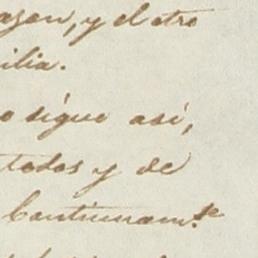 azon, y el otro
ilia.
o sigue así,
todos y de
continuam.te